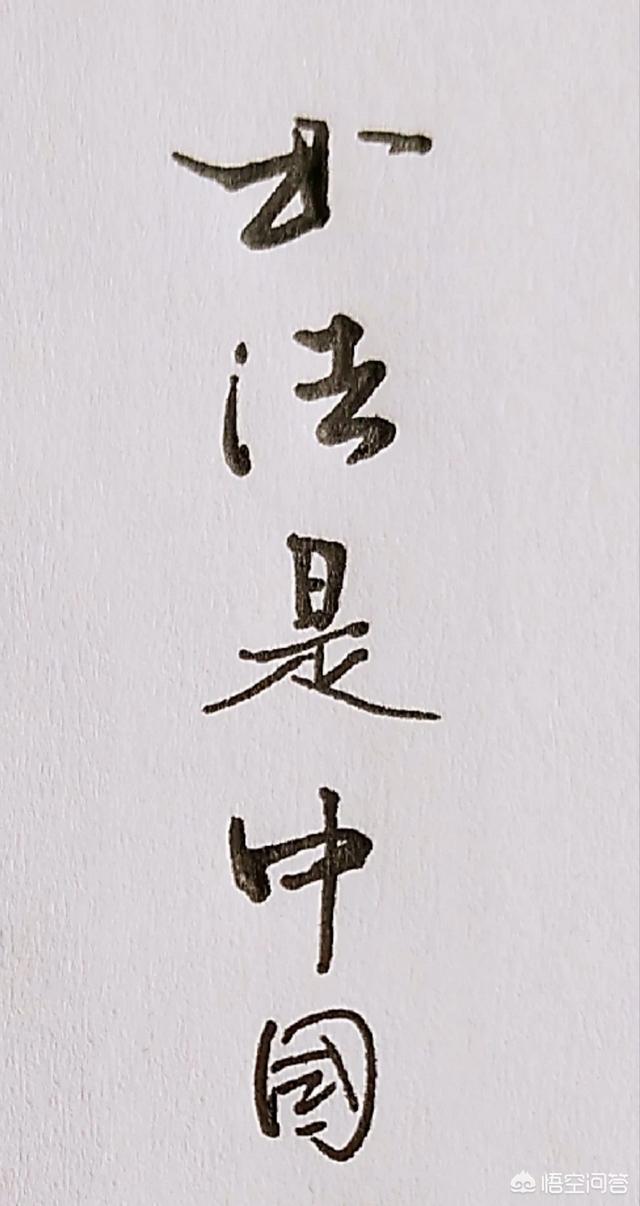 书法是中國
悟空问答